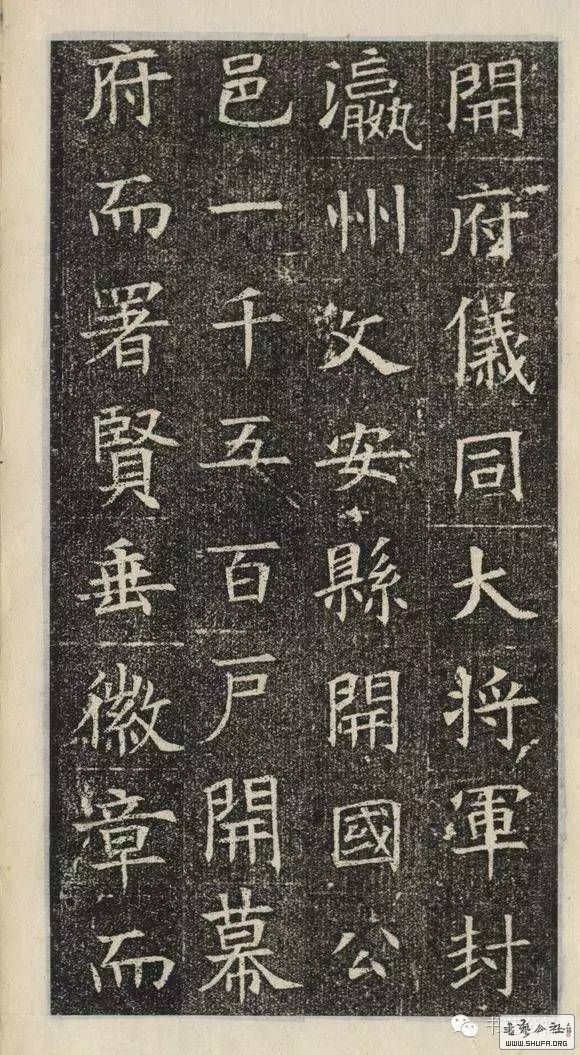 開府儀同大将軍封
瀛州文安縣開國公
邑一千五百戶開幕
府而署賢垂徽章而
书艺公社
WWW.SHUFA.ORG